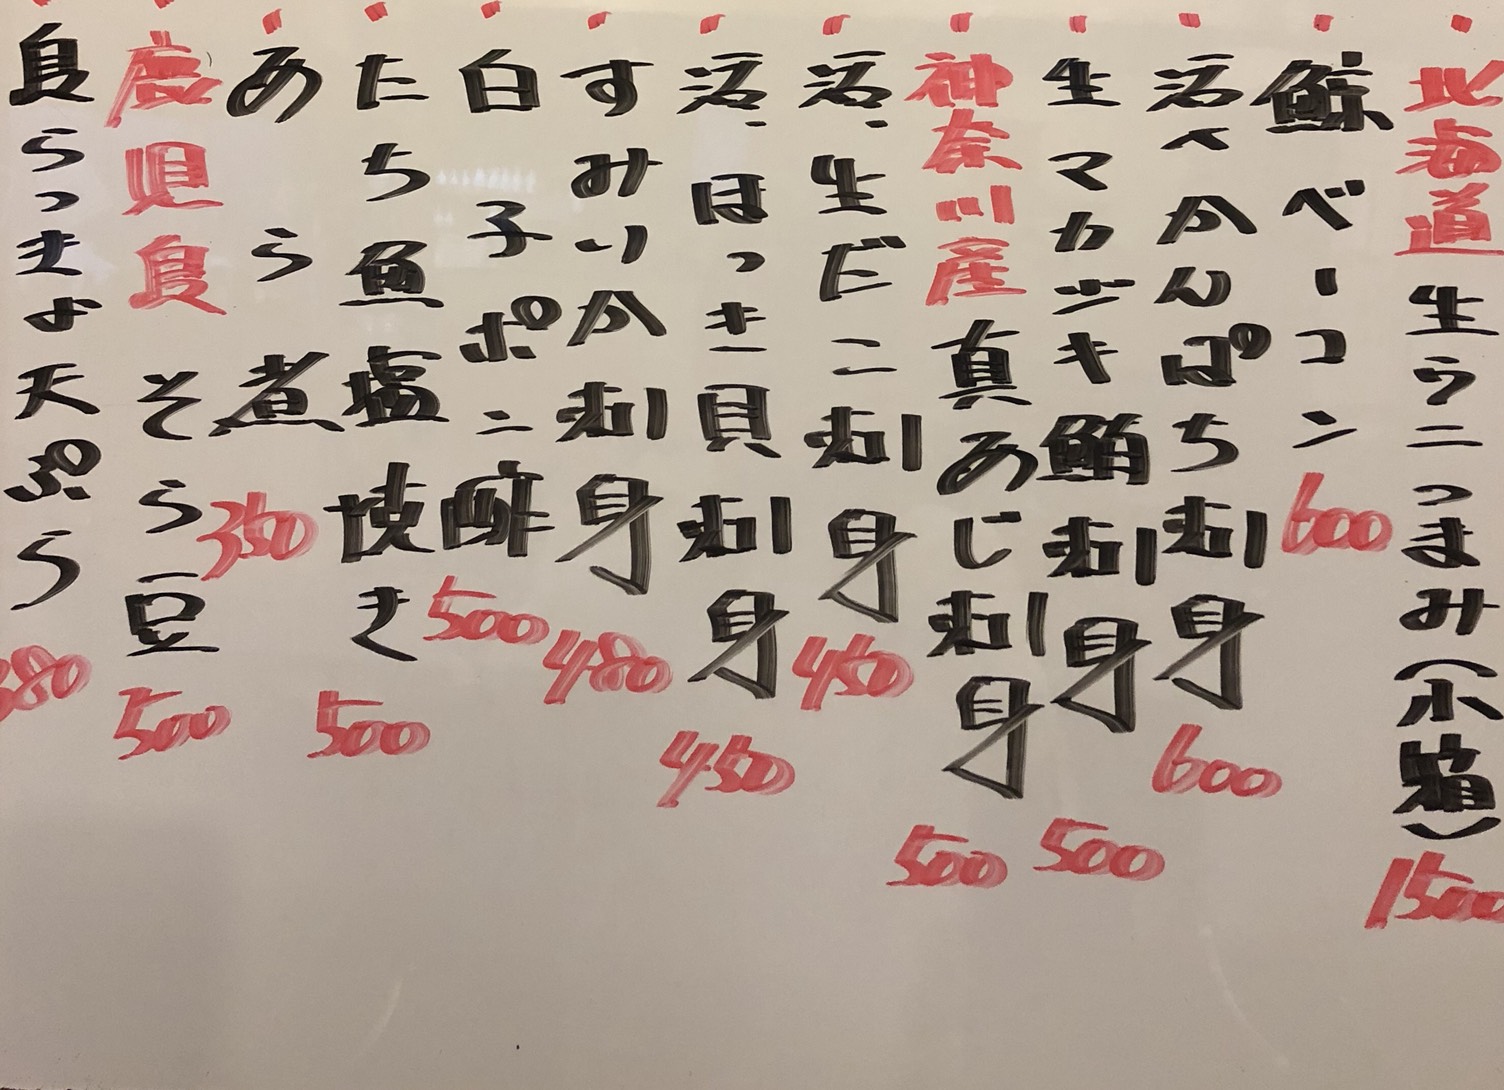 北海道 生ウニつまみ(木箱) 1500
鯨ベーコン 600
活〆かんぱち刺身 600
生マカジキ鮪刺身 500
神奈川産 真あじ刺身 500
活、生だこ刺身 450
活、ほっき貝刺身 450
すみいか刺身 480
白子ポン酢 500
たち魚塩焼き 500
あら煮 350
鹿児島 そら豆 500
島らっきょ天ぷら 380